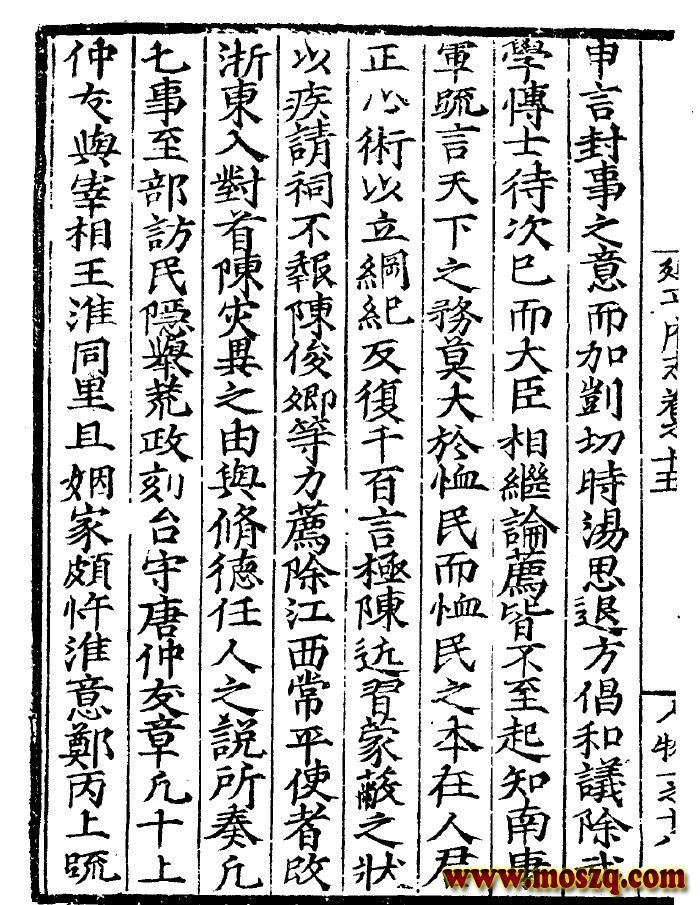 卷之十五
人物
申言封事之意而加剴切時湯思退方倡和議除武
學博士待次已而大臣相繼論薦皆不至起知南康
軍疏言天下之務莫大於恤民而恤民之本在人君
正心術以立綱紀反復千百言極陳近習蒙蔽之狀
以疾請祠不報陳俊卿等力薦除江西常平使者改
浙東入對首陳灾異之由與脩德任人之說所奏凡
七事至部訪民隱舉荒政刻台守唐仲友章凡十上
仲友與宰相王淮同里且姻家頗忤淮意鄭丙上疏
www.moszq.com